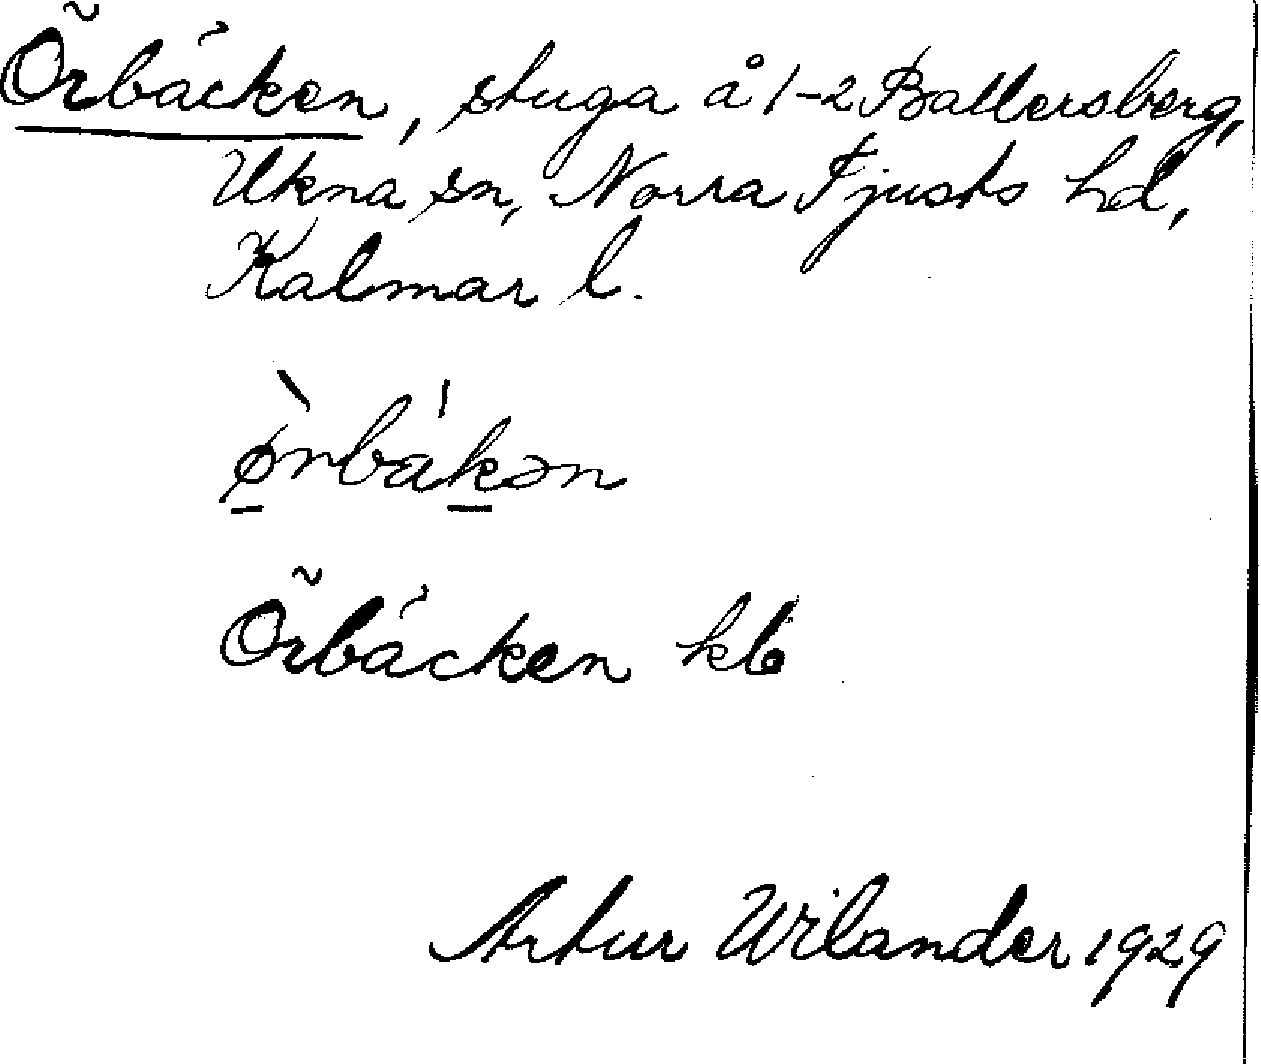 Örbäcken, stuga å 1-2 Ballersberg,
Ukna sn, Norra Tjusts hd,
Kalmar l.
ø̀rbàkən
Örbäcken kb
Artur Wilander 1929